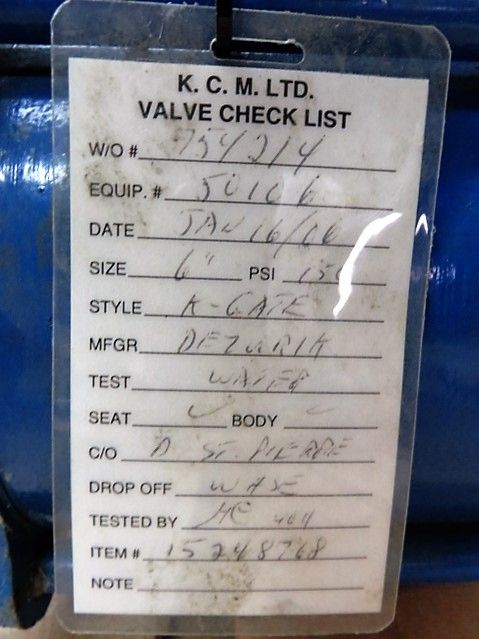 K. C. M. LTD.
VALVE CHECK LIST
W/O # 754214
EQUIP. # 50106
DATE JAN 16/06
SIZE 6" PSI 150
STYLE K-GATE
MFGR DEZURIK
TEST WATER
SEAT ✓ BODY ✓
C/O D ST. PIERRE
DROP OFF WHSE
TESTED BY
ITEM # 15248768
NOTE